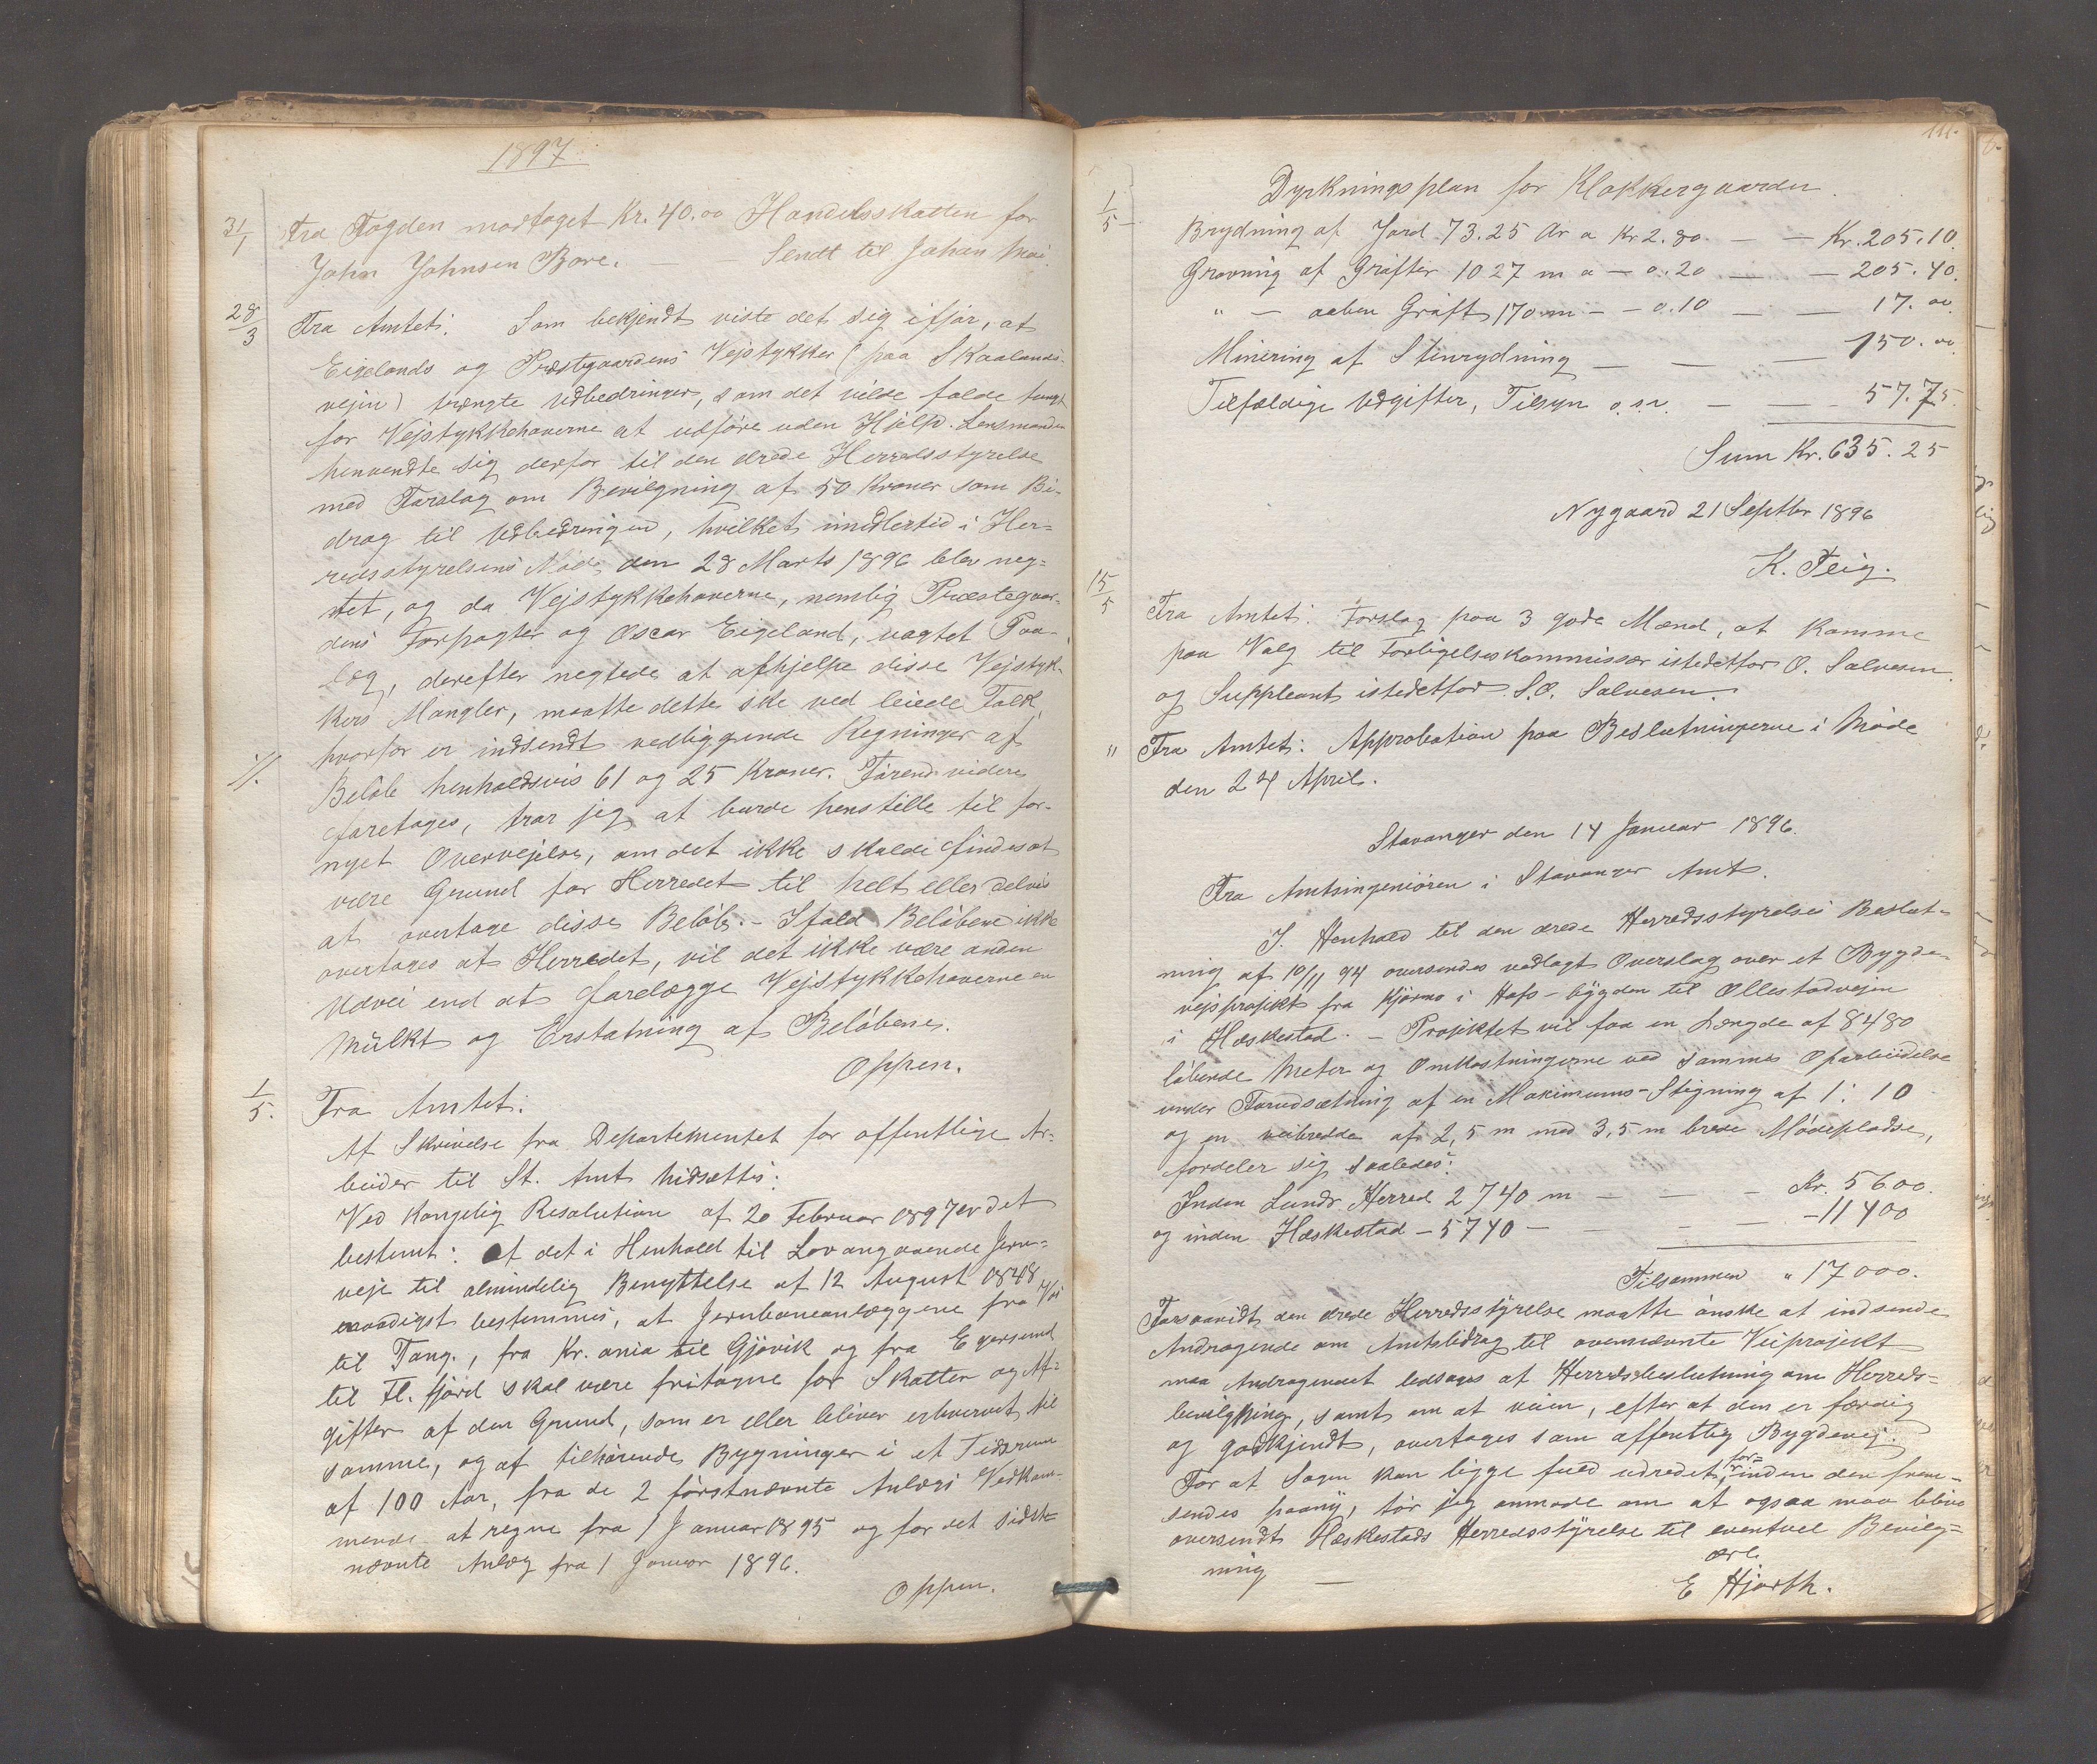 1897
31/1 Fra Fogden modtaget Kr. 40.00 Handelsskatten for
John Johnsen Bore. Sendt til Johan Moi.
28/3 Fra Amtet: Som bekjendt viste det sig ifjor, at
Eigelands og Præstgaardens Vejstykker (paa Skaalands-
vejen) trængte Udbedringer, som det vilde falde tungt
for Vejstykkehaverne at udføre uden Hjelp. Lensmanden
henvendte sig derfor til den ærede Herredsstyrelse
med Forslag om Bevilgning af 50 Kroner som Bi-
drag til Udbedringen, hvilket imidlertid i Her=
redsstyrelsens Møde den 28 Marts 1896 blev neg=
tet, og da Vejstykkehaverne, nemlig Præstegaar-
dens Forpagter og Oscar Eigeland, vagtet Paa-
læg, derefter negtede at afhjelpe disse Vejstyk-
kers Mangler, maatte dette ske ved leiede Folk,
hvorfor er indsendt vedliggende Regninger af
Beløb henholdsvis 61 og 25 Kroner. Førend videre
foretages, tror jeg at burde henstille til for-
nyet Overvejelse, om det ikke skulde findes at
være Grund for Herredet til helt eller delvis
at overtage disse Beløb. – Ifald Beløbene ikke
overtages af Herredet, vil det ikke være anden
Udvei end at forelægge Vejstykkehaverne en
Mulkt og Erstatning af Beløbene.
Oppen.
1/5. Fra Amtet:
Af Skrivelse fra Departementet for offentlige Ar-
beider til St. Amt hidsættes:
Ved Kongelig Resolution af 20 Februar 1897 er det
bestemt: at det i Henhold til Lov angaaende Jern=
veje til almindelig Benyttelse af 12 August 1848
naadigst bestemmes, at Jernbaneanlæggene fra
til Tang., fra Kr.ania til Gjøvik og fra Egersund
til Fl. fjord skal være fritagne for Skatter og Af=
gifter af den Grund, som er eller bliver erhvervet til
samme, og af tilhørende Bygninger i et Tidsrum
af 100 Aar, fra de 2 førstnævnte Anlægs Vedkom-
mende at regne fra 1 Januar 1895 og for det sidst-
nævnte Anlæg fra 1 Januar 1896.
Oppen.
111.
1/5 – Dyrkningsplan for Klokkergaarden.
Brydning af Jord 73.25 Ar a Kr. 2.80. – – Kr. 205.10.
Gravning af Grøfter 1027 m a – 0.20 – – 205.40.
" – aaben Grøft 170 m – – 0.10 – – 17.00.
Minering af Stenrydning – – – 150.00
Tilfældige Udgifter, Tilsyn o.s.v. – – 57.75.
Sum Kr. 635.25
Nygaard 21 Septbr 1896
K. Teig.
15/5 Fra Amtet: Forslag paa 3 gode Mænd, at komme
paa Valg til Forligelseskommissær istedetfor O. Salvesen
og Suppleant istedetfor S.O. Salvesen.
" Fra Amtet: Approbation paa Beslutningerne i Møde
den 24 April.
Stavanger den 14 Januar 1896.
Fra Amtsingeniøren i Stavanger Amt.
I Henhold til den ærede Herredsstyrelses Beslut-
ning af 10/11 94 oversendes vedlagt Overslag over et Bygde-
vejsprojekt fra Kjørmo i Hofs-bygden til Ollestadvejen
i Heskestad. – Projektet vil faa en Længde af 8480
løbende Meter og Omkostningerne ved sammes Oparbeidelse
under Forudsætning af en Maximums-Stigning af 1:10
og en veibredde af 2,5 m med 3,5 m brede Mødepladse,
fordeler sig saaledes:
Inden Lunds Herred 2740 m – – – Kr. 5600.
og inden Heskestad – 5740 – – – – 11400
Tilsammen " 17000.
Forsaavidt den ærede Herredsstyrelse maatte ønske at indsende
Andragende om Amtsbidrag til ovennævnte Veiprojekt
maa Andragendet ledsages af Herredsbeslutning om Herreds-
bevilgning, samt om at veien, efter at den er færdig
og godkjendt, overtages som offentlig Bygdevej.
For at Sagen kan ligge fuld udredet, for-inden den frem-
sendes paany, tør jeg anmode om at ogsaa maa blive
oversendt Heskestads Herredsstyrelse til eventuel Bevilg=
ning –
ærb.
E Hjorth.